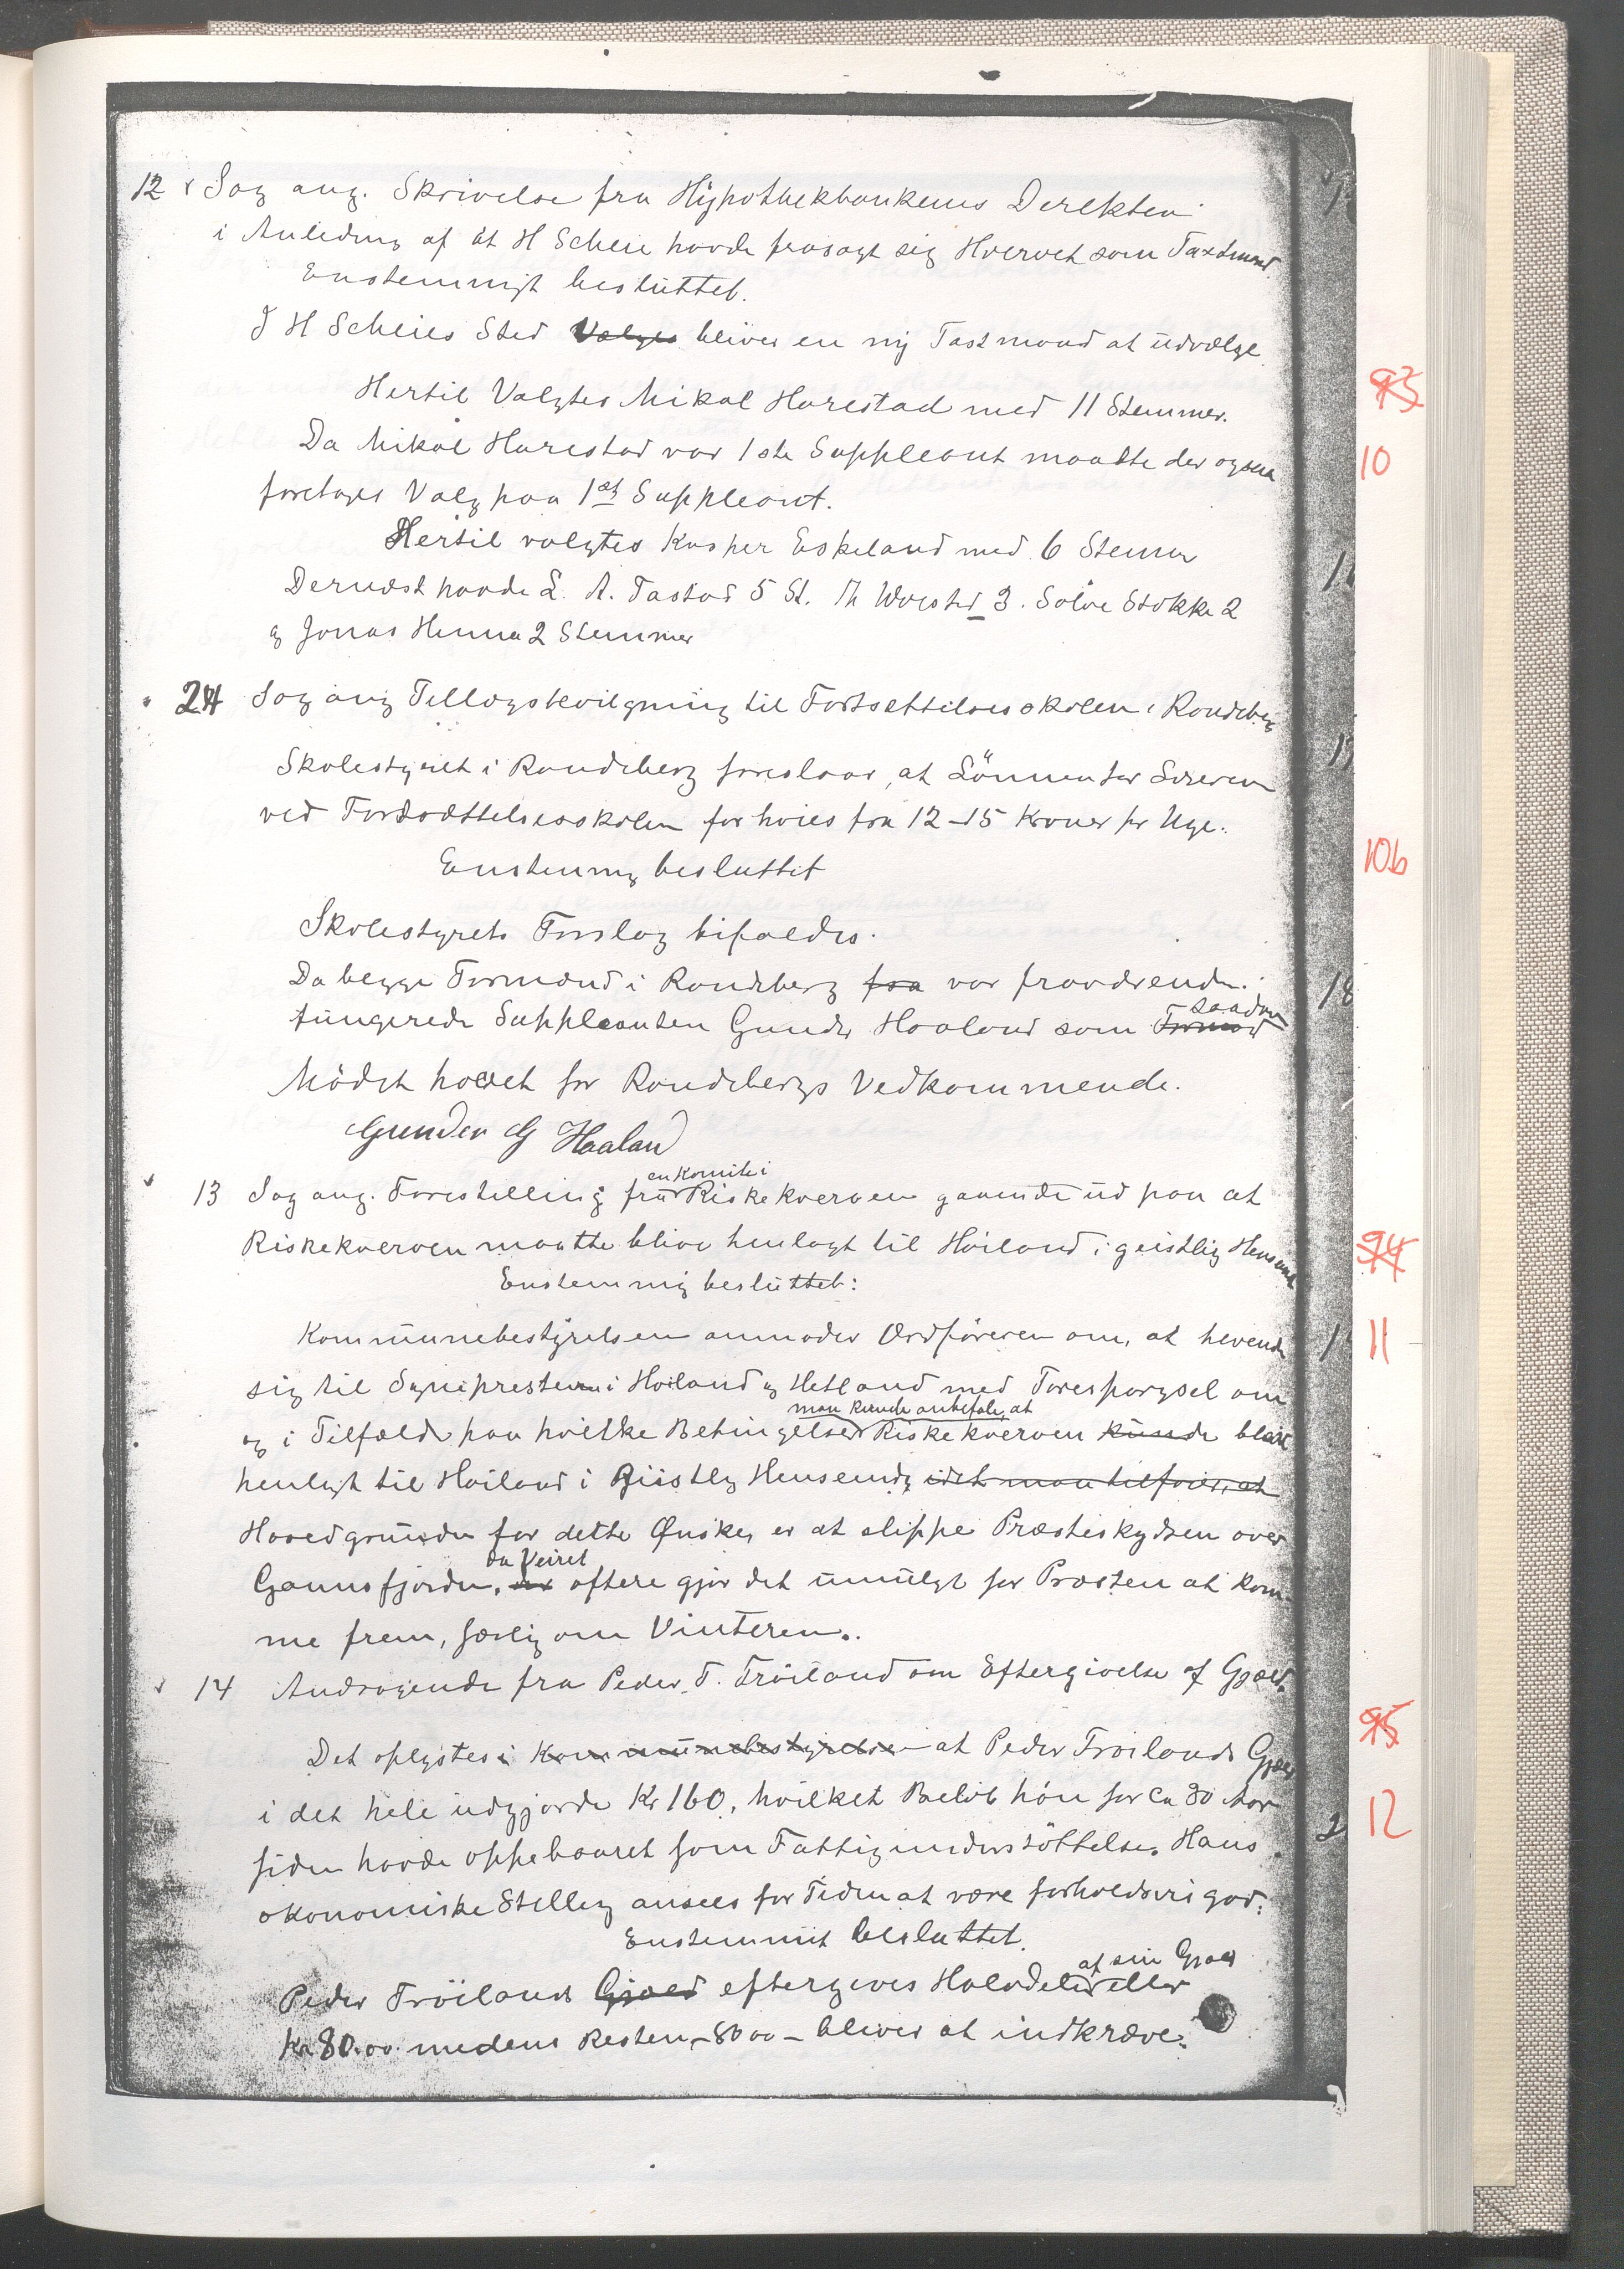 12 Sag ang. Skrivelse fra Hypothekbankens Derektion
i Anledning af at H Scheie havde frasagt sig Hvervet som Taxtmand.
Enstemmigt besluttet.
I H Scheies Sted Vælges bliver en ny Taxtmand at udvælge.
Hertil Valgtes Mikal Harestad med 11 Stemmer.
Da Mikal Harestad var 1ste Suppleant maatte der ogsaa
foretages Valg paa 1st Suppleant.
Hertil valgtes Kasper Eskeland med 6 Stemmer
Dernæst havde L. A. Tastad 5 St. Th Wolsted 3. Sølve Stokke 2
og Jonas Henna 2 Stemmer
24 Sag ang Tillægsbevilgning til Fortsættelsesskolen i Randeberg
Skolestyret i Randeberg foreslaar, at Lønnen for Læreren
ved Fortsættelsesskolen forhøies fra 12-15 Kroner pr Uge.
Enstemmig besluttet
Skolestyrets Forslag bifaldes.
Da begge Formænd i Randeberg fra var fraværende.
saadan
fungerede Suppleanten Gunder Haaland som Formand
Mødet hævet for Randebergs Vedkommende.
Gunder G Haaland
en Komite i
13 Sag ang. Forestilling fra Riskekverven gaaende ud paa at
Riskekverven maatte blive henlagt til Høiland i geistlig Henseende
Enstemmig besluttet:
Kommunebestyrelsen anmoder Ordføreren om, at hevende
sig til Sognepresten i Høiland og Hetland med Forespørgsel om
man kunde anbefale, at
og i Tilfælde paa hvilke Betingelser Riskekverven kunde blive
henlagt til Høiland i Gjistlig Henseende, idet man tilføier, at
Hovedgrunden for dette Ønske, er at slippe Præsteskydsen over
da Veiret
Gannsfjorden, er oftere gjør det umuligt for Præsten at kom-
me frem, særlig om Vinteren.
14 Andragende fra Peder T. Trøiland om Eftergivelse af Gjæld.
Det oplystes i Kommunebestyrelsen at Peder Trøilands Gjæld
i det hele udgjorde Kr 160, hvilket Beløb han for ca 30 Aar
siden havde oppebaaret som Fattigunderstøttelse. Hans
økonomiske Stilling ansees for Tiden at være forholdsvis god.
Enstemmit besluttet.
af sin Gjæld
Peder Trøilands Gjæld eftergives Halvdelen eller
Kr 80.00 medens Resten - 80 00 - bliver at indkræve.
93
10
106
94
11
95
12